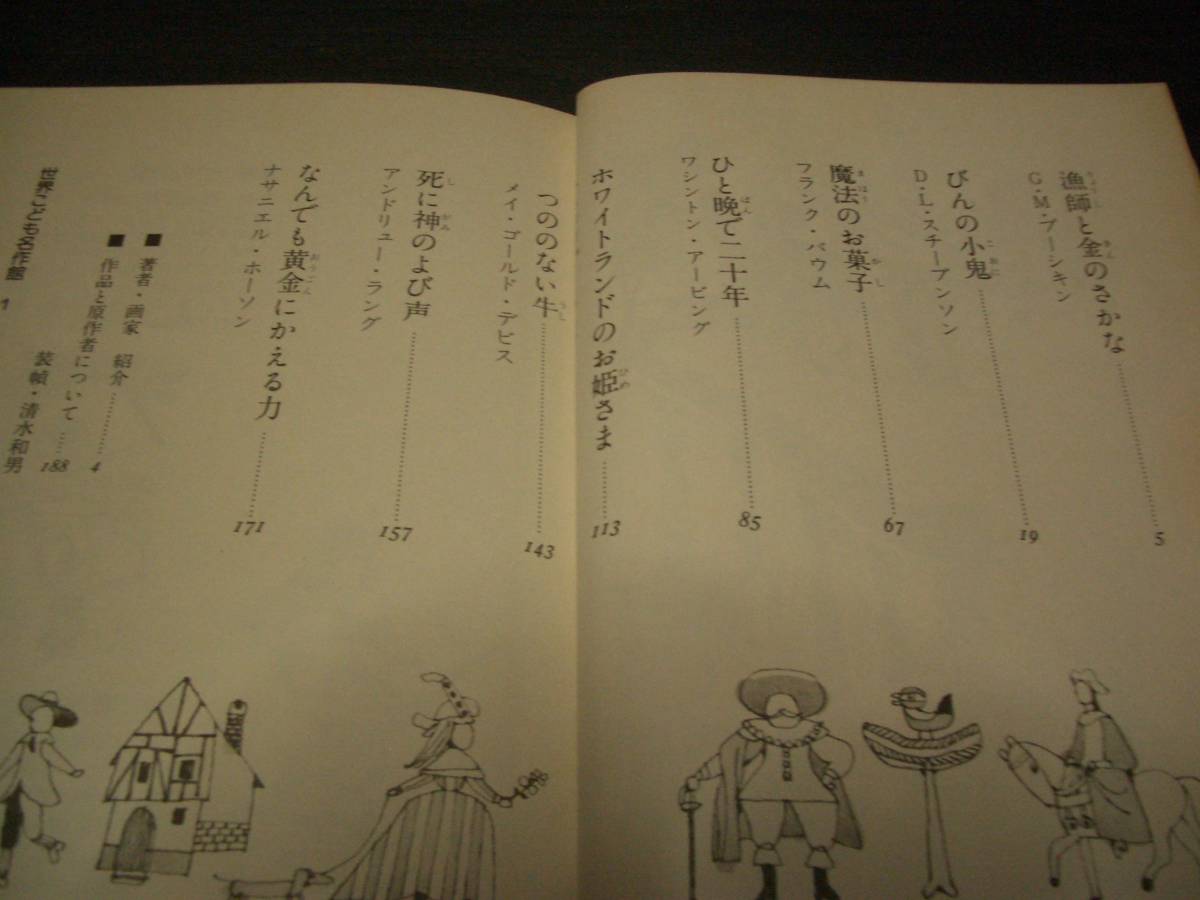 漁師と金のさかな……5
G・M・プーシキン
びんの小鬼……19
D・L・スチーブンソン
魔法のお菓子……67
フランク・バウム
ひと晩で二十年……85
ワシントン・アービング
ホワイトランドのお姫さま……113
つののない牛……143
メイ・ゴールド・デビス
死に神のよび声……157
アンドリュー・ラング
なんでも黄金にかえる力……171
ナサニエル・ホーソン
■著者・画家 紹介……4
■作品と原作者について……188
世界こども名作館 1
装幀・清水和男